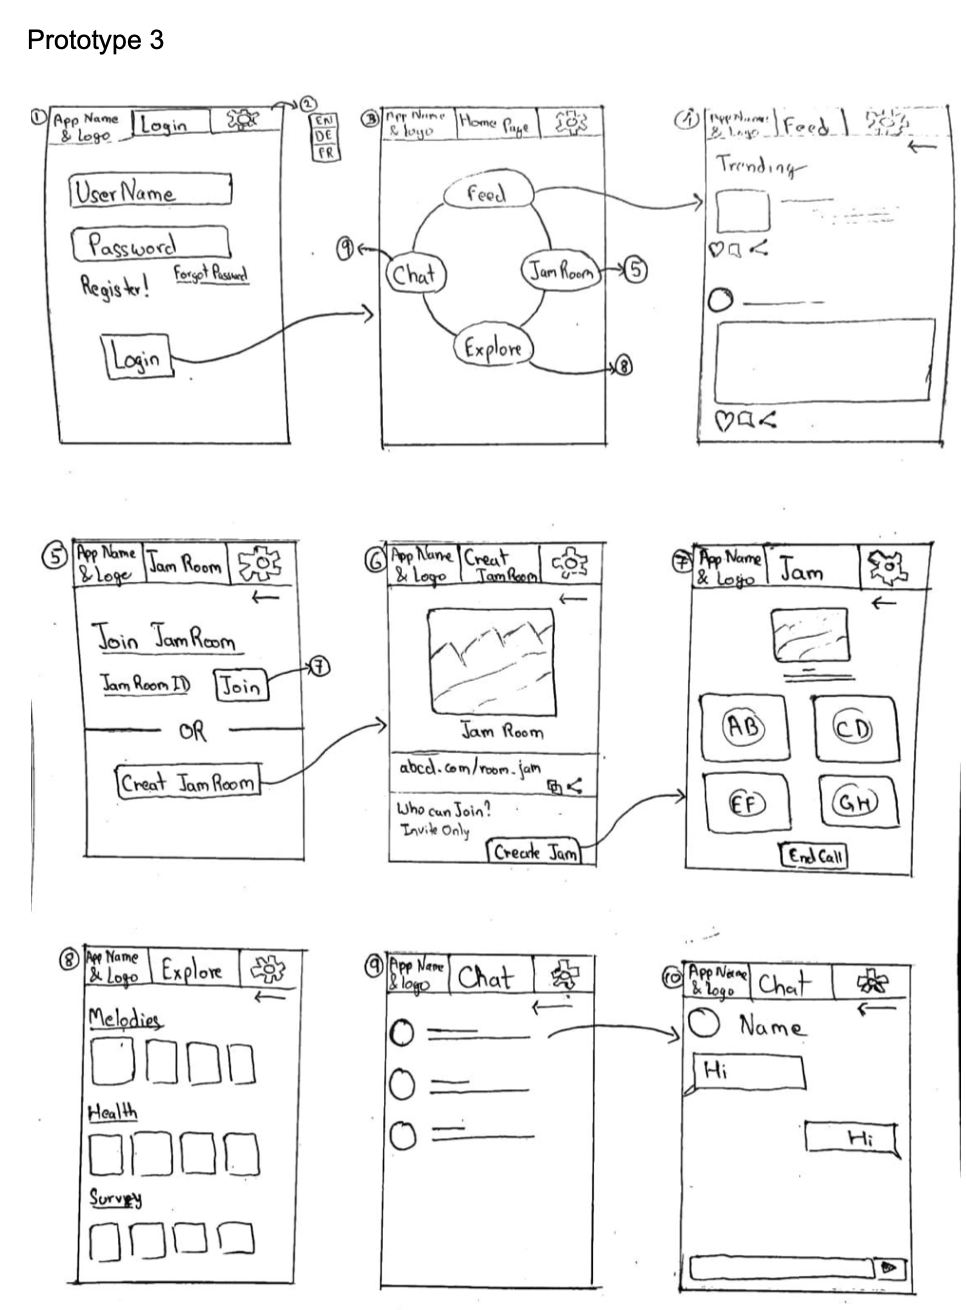 Prototype 3
1
App Name
& Logo
Login
2
EN
DE
FR
UserName
Password
Register!
Forgot Password
Login
3
App Name
& logo
Home Page
Feed
Chat
Jam Room
Explore
9
5
8
App Name
& Logo
Feed
Trending
5
App Name
& Loge
Jam Room
Join JamRoom
Jam Room ID
Join
7
OR
Creat JamRoom
6
App Name
& Logo
Creat
JamRoom
Jam Room
abcd.com/room.jam
Who can Join?
Invite Only
Create Jam
7
App Name
& Logo
Jam
AB
CD
EF
GH
End Call
8
App Name
& Logo
Explore
Melodies
Health
Survey
9
App Name
& logo
Chat
10
App Name
& Logo
Chat
Name
Hi
Hi